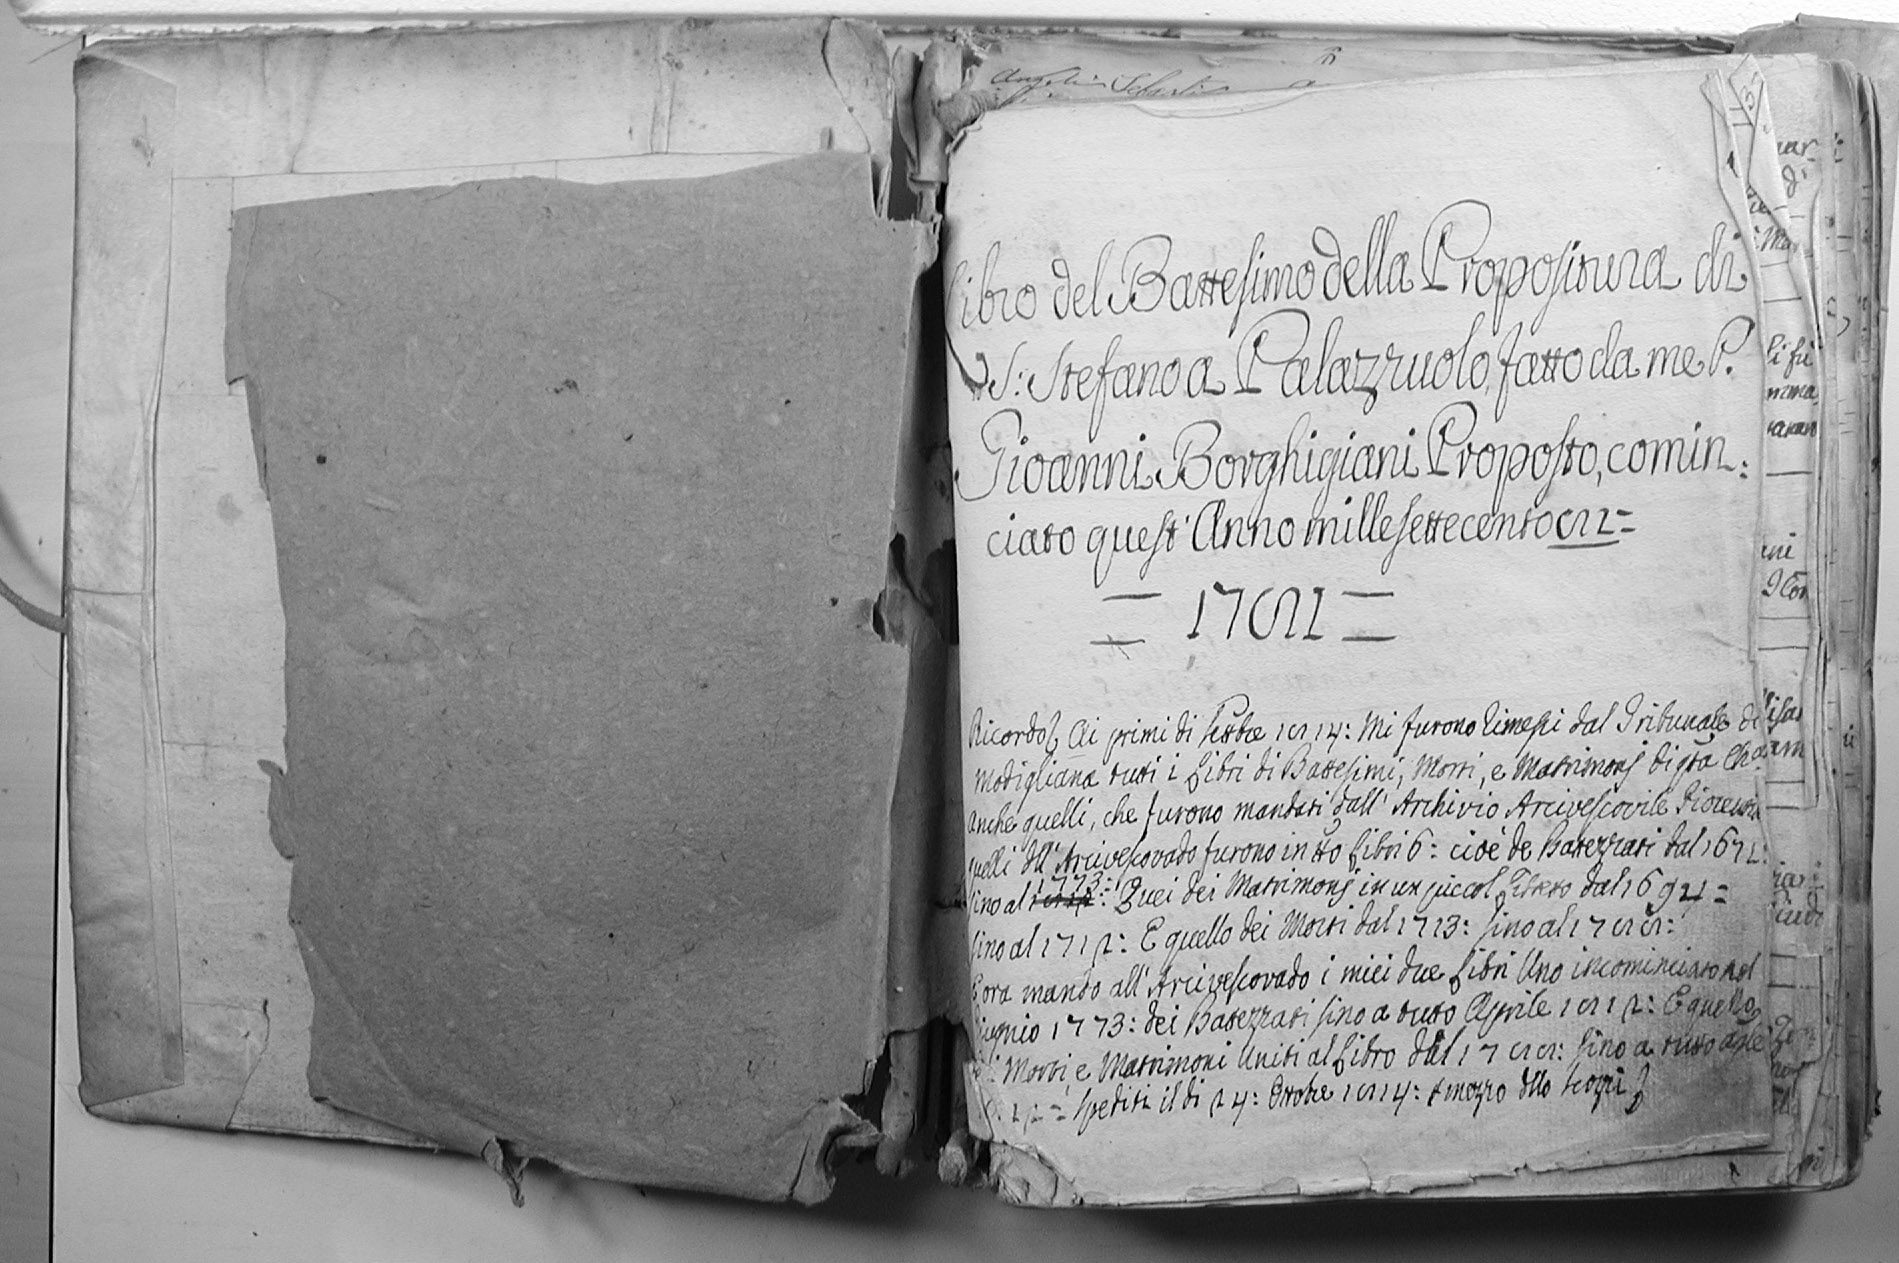 Libro del Battesimo della Propositura di
S: Stefano a Palazzuolo, fatto da me P.
Gioanni Borghigiani Proposto, comin:
ciato quest' Anno millesettecento82=
= 1782 =
Ricordo. Ai primi di Settbre 1814: Mi furono rimessi dal Tribunale di
Modigliana tutti i Libri di Battesimi, Morti, e Matrimonj di qta Cha
Anche quelli, che furono mandati dall' Archivio Arcivescovile Fiorentin
quelli dll' Arcivescovado furono in tto Libri 6: cioè de Battezzati dal 1672:
sino al 1773: Quei dei Matrimonj in un piccol Libreto dal 1694=
sino al 1712: E quello dei Morti dal 1713: sino al 1788:
E ora mando all' Arcivescovado i miei due Libri Uno incominciato nel
Giugnio 1773: dei Battezzati sino a tutto Aprile 1812: E quello
dei Morti e Matrimoni Uniti al Libro dal 1788: sino a tutto aple
spediti il di 24: Ottobre 1814: p mezzo dllo